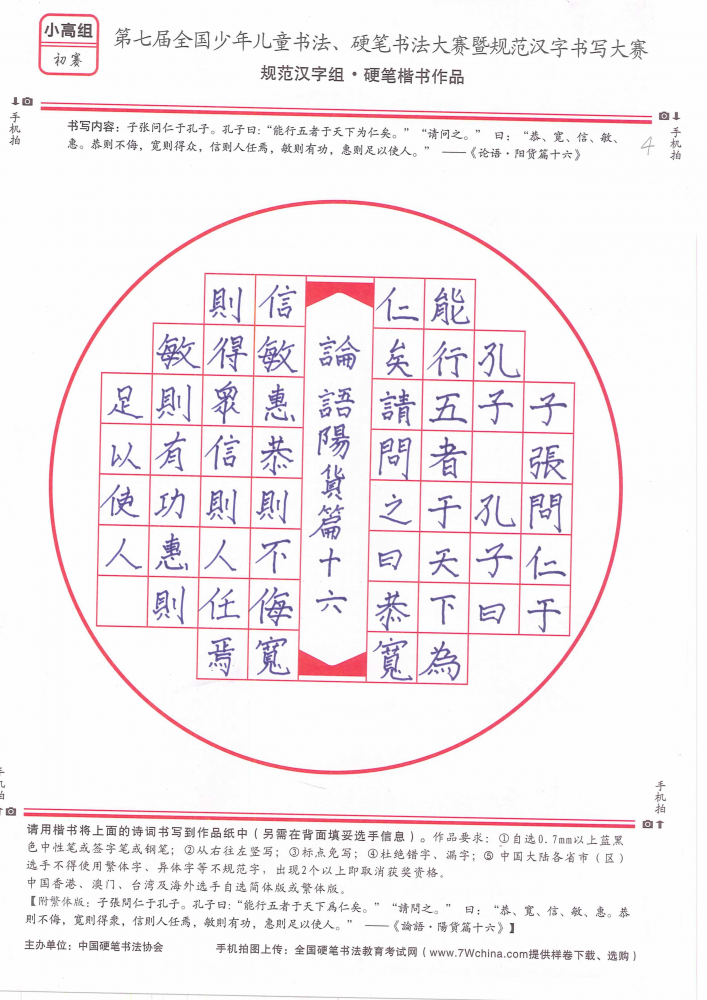 小高组
初赛
第七届全国少年儿童书法、硬笔书法大赛暨规范汉字书写大赛
规范汉字组·硬笔楷书作品
手机拍
手机拍
书写内容：子张问仁于孔子。孔子曰：“能行五者于天下为仁矣。”“请问之。”曰：“恭、宽、信、敏、
惠。恭则不侮，宽则得众，信则人任焉，敏则有功，惠则足以使人。” ——《论语·阳货篇十六》
4
子張問仁于
孔子孔子曰
能行五者于天下為
仁矣請問之曰恭寬
論語陽貨篇十六
信敏惠恭則不侮寬
則得眾信則人任焉
敏則有功惠則
足以使人
手机拍
手机拍
请用楷书将上面的诗词书写到作品纸中（另需在背面填妥选手信息）。作品要求：①自选0.7mm以上蓝黑
色中性笔或签字笔或钢笔；②从右往左竖写；③标点免写；④杜绝错字、漏字；⑤ 中国大陆各省市（区）
选手不得使用繁体字、异体字等不规范字，出现2个以上即取消获奖资格。
中国香港、澳门、台湾及海外选手自选简体版或繁体版。
【附繁体版：子張問仁于孔子。孔子曰：“能行五者于天下爲仁矣。”“請問之。” 曰：“恭、寬、信、敏、惠。恭
則不侮，寬則得衆，信則人任焉，敏則有功，惠則足以使人。” ——《論語·陽貨篇十六》】
主办单位：中国硬笔书法协会
手机拍图上传：全国硬笔书法教育考试网（www.7Wchina.com提供样卷下载、选购）